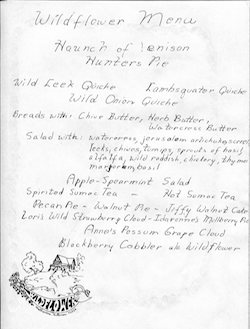 Wildflower Menu
Haunch of Venison
Hunters Pie
Wild Leek Quiche Lambsquater Quiche
Wild Onion Quiche
Breads with: Chive Butter, Herb Butter,
Watercress Butter
Salad with: watercress, jerusalem artichokes, cress
leeks, chives, turnips, sprouts of basil
alfalfa, wild raddish, chickory, thyme
marjoram, basil
Apple-Spearmint Salad
Spirited Sumac Tea - Hot Sumac Tea
Pecan Pie - Walnut Pie - Jiffy Walnut Cake
Lori's Wild Strawberry Cloud - Idarenne's Mullberry Pie
Anne's Possum Grape Cloud
Blackberry Cobbler ala Wildflower
WILDFLOWER